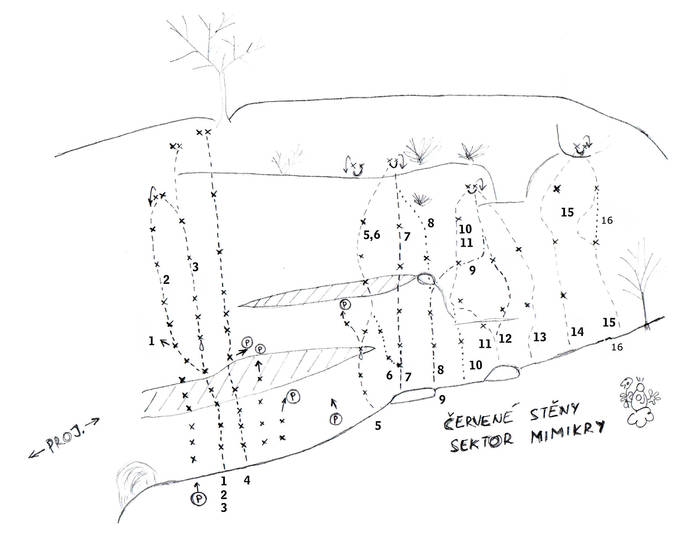 5,6
7
8
10
11
15
16
2
3
9
1
P
P
P
11
12
13
14
15
16
6
7
8
10
9
P
P
5
← PROJ. →
ČERVENÉ STĚNY
SEKTOR MIMIKRY
P
1
2
3
4